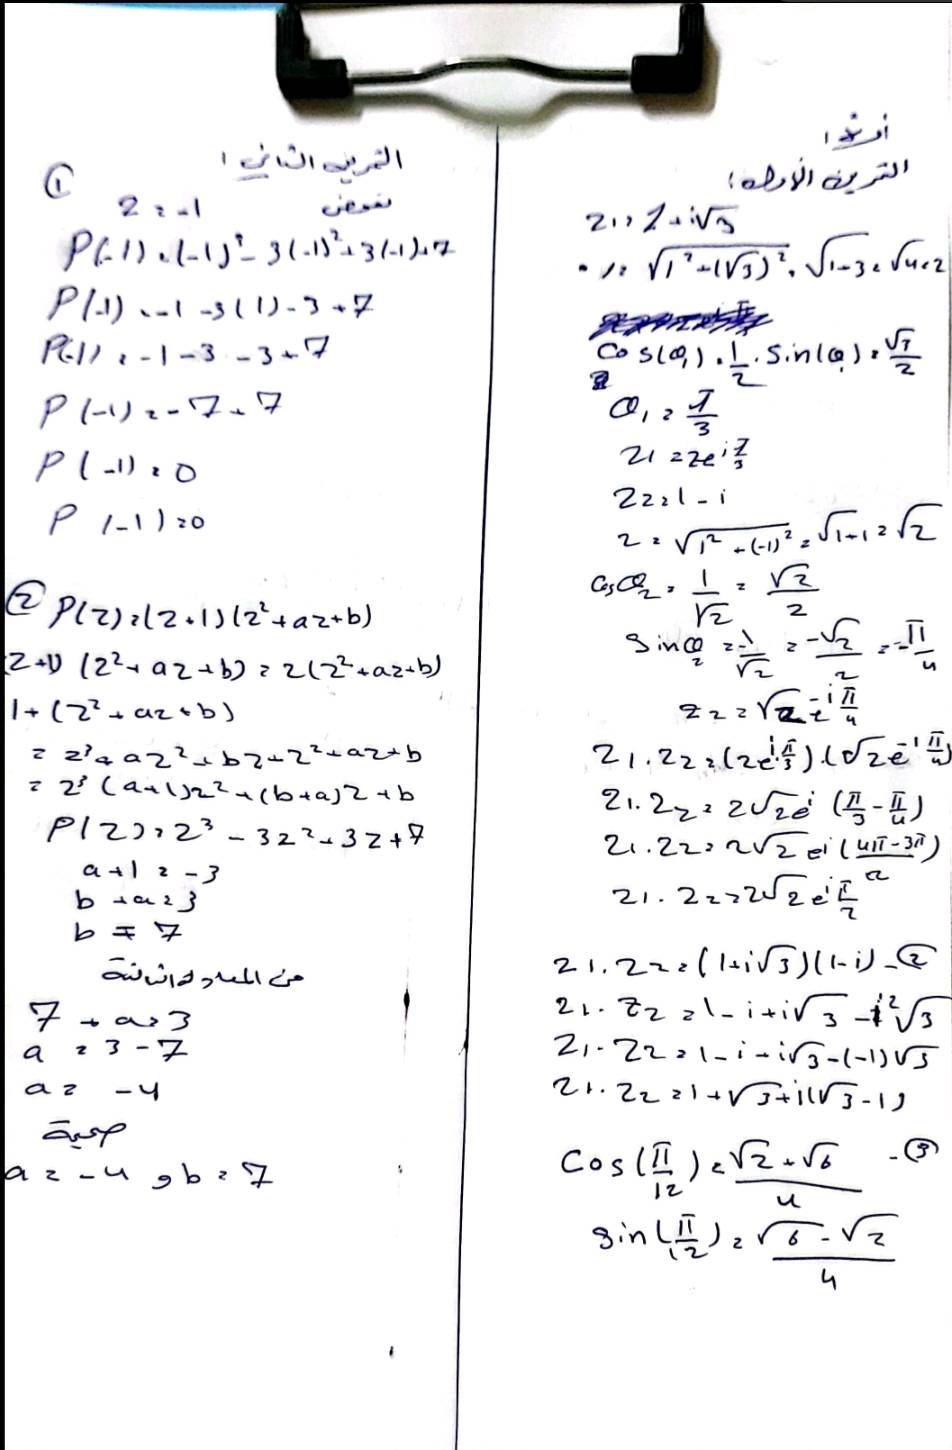 أولا:
التمرين الأول:
z1 = 1+i√3
r = √(1²+(√3)²) = √(1+3) = √4 = 2
cos(θ1) = 1/2 . sin(θ1) = √3/2
θ1 = π/3
z1 = 2e^(iπ/3)
z2 = 1-i
z = √(1²+(-1)²) = √(1+1) = √2
cosθ2 = 1/√2 = √2/2
sinθ2 = -1/√2 = -√2/2 = -π/4
z2 = √2e^(-iπ/4)
z1.z2 = (2e^(iπ/3)).(√2e^(-iπ/4))
z1.z2 = 2√2e^i(π/3-π/4)
z1.z2 = 2√2 e^i((4π-3π)/12)
z1.z2 = 2√2e^(iπ/12)
z1.z2 = (1+i√3)(1-i) -②
z1.z2 = 1-i+i√3-i²√3
z1.z2 = 1-i+i√3-(-1)√3
z1.z2 = 1+√3+i(√3-1)
cos(π/12) = (√2+√6)/4 -③
sin(π/12) = (√6-√2)/4
التمرين الثاني:
①
z = -1 نعوض
P(-1) = (-1)³-3(-1)²+3(-1)+7
P(-1) = -1-3(1)-3+7
P(-1) = -1-3-3+7
P(-1) = -7+7
P(-1) = 0
P(-1) = 0
② P(z) = (z+1)(z²+az+b)
z+1) (z²+az+b) = z(z²+az+b)
1+(z²+az+b)
= z³+az²+bz+z²+az+b
= z³(a+1)z²+(b+a)z+b
P(z) = z³-3z²+3z+7
a+1 = -3
b+a = 3
b = 7
من المعادلة الثانية
7+a = 3
a = 3-7
a = -4
صحيحة
a = -4 و b = 7